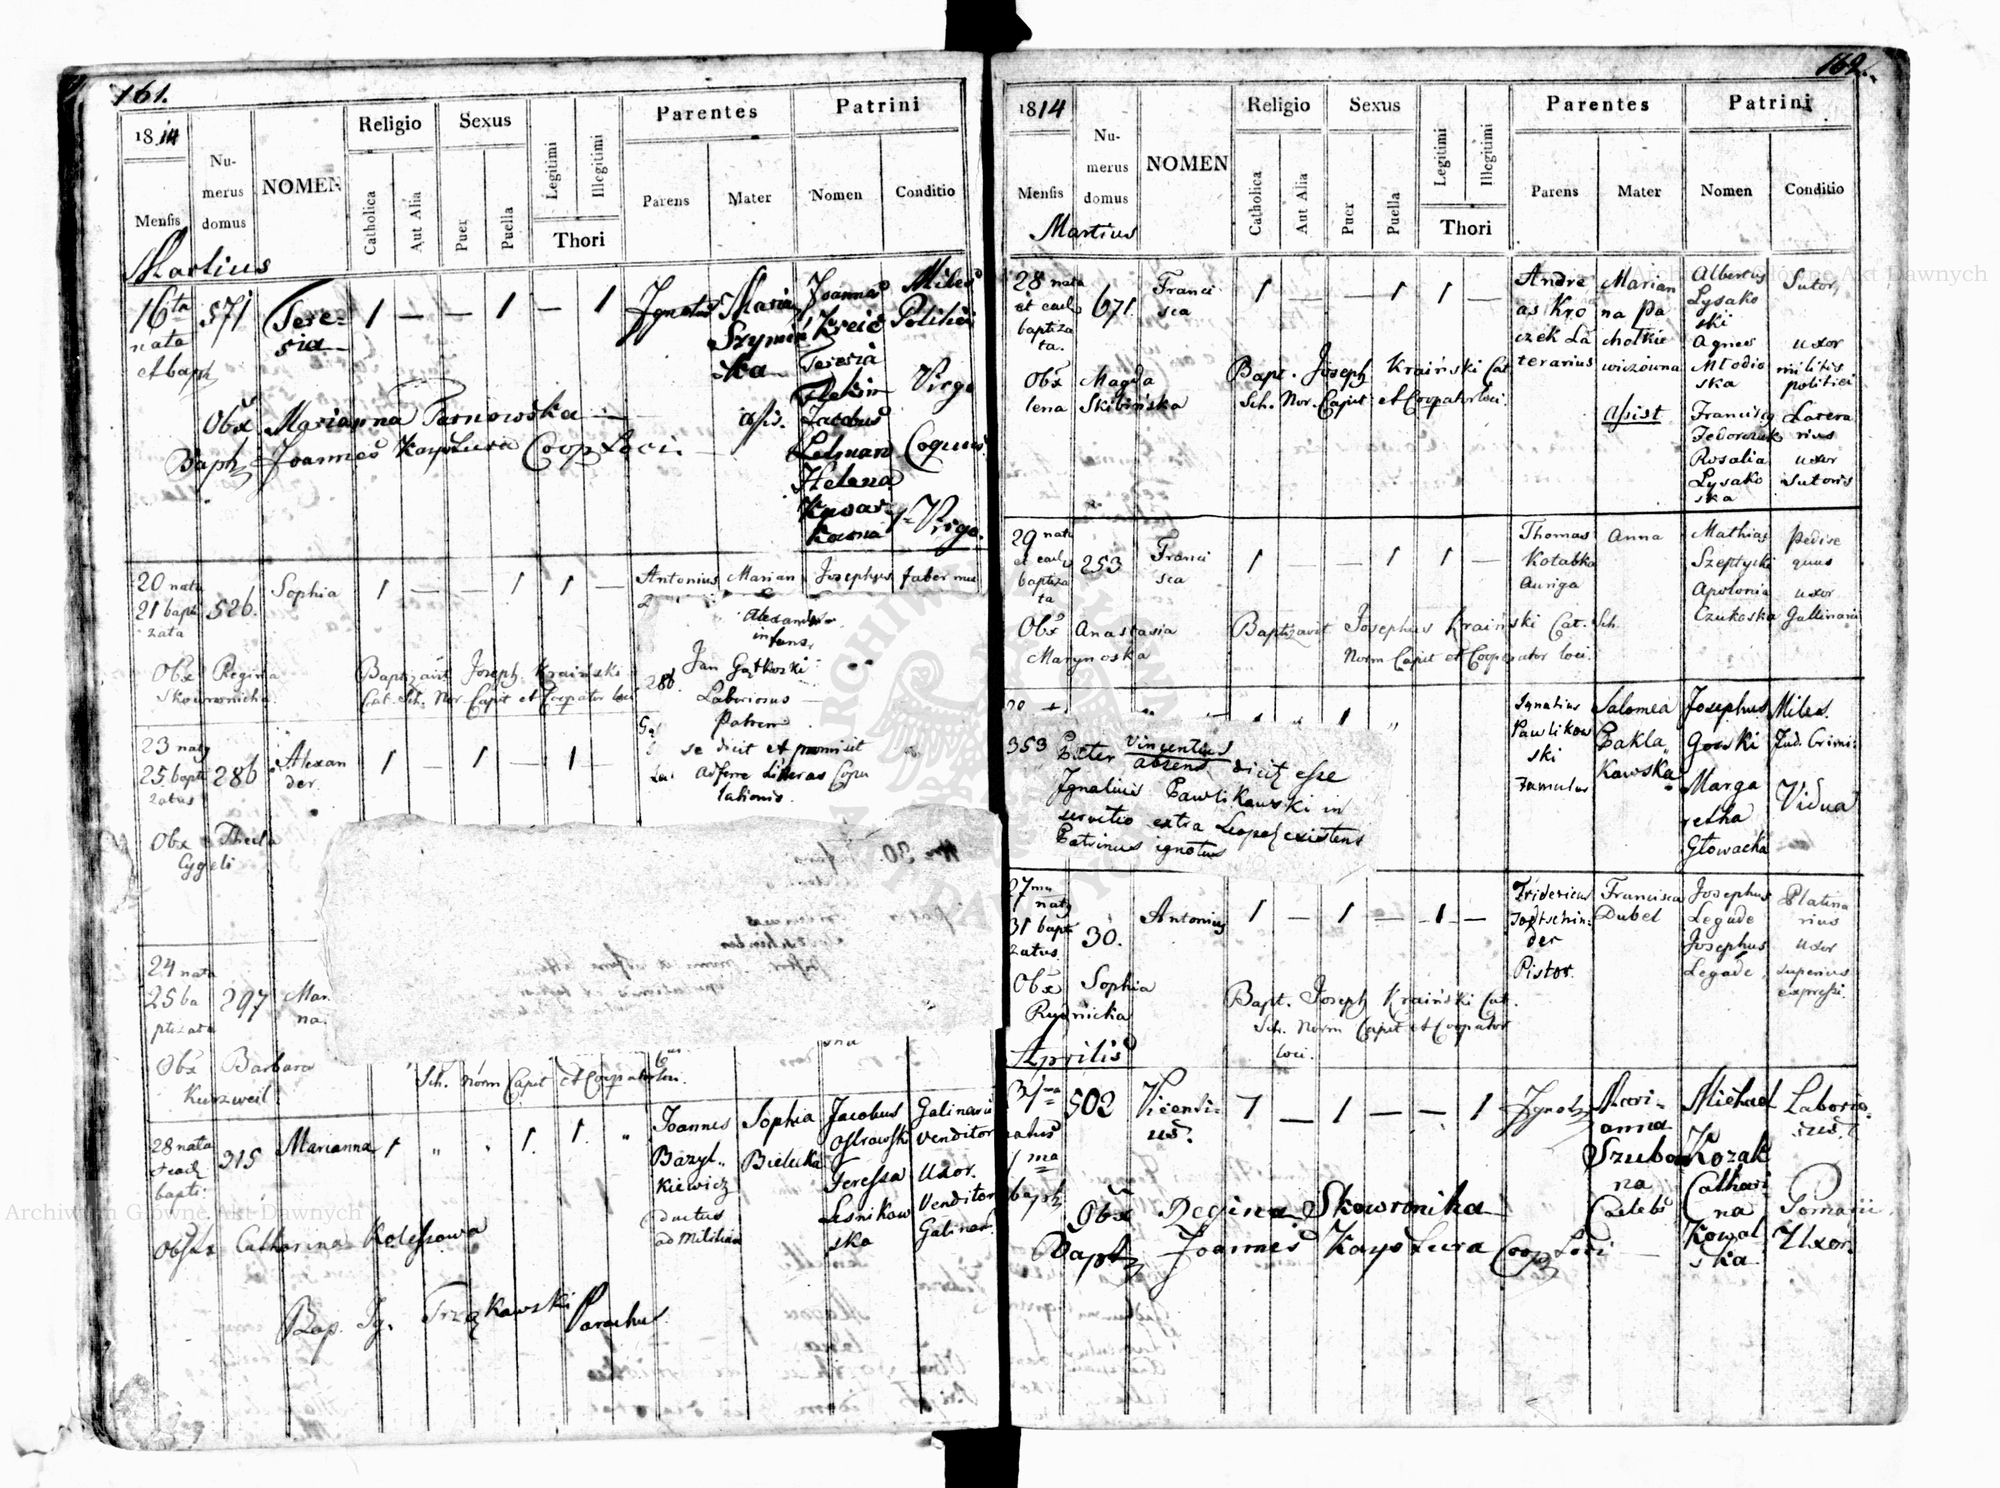 161.
1814
Numerus domus
NOMEN
Religio
Sexus
Parentes
Patrini
Mensis
Catholica
Aut Alia
Puer
Puella
Legitimi
Illegitimi
Thori
Parens
Mater
Nomen
Conditio
Martius
16ta
nata
et bapt
571
Tere-
sia
1 — — 1 — 1
Ignatius
Maria
Szymiń
ska
Joannes
Kreis
Teresia
Jacobus
Lehman
Helena
Miles
Politiei
Virgo
Coquus
Virgo.
Obx Marianna Tarnowska
assis.
Baptz Joannes Kaysztura Coop Loci.
20 nata
21 bapti
zata
526.
Sophia
1 — — 1 1 —
Antonius
Marian
Josephus
faber mu
Obx Regina
Skowronicka
Baptizavit Joseph Kraiński
Cat. Sch. Nor. Caput et Coopator loci
Alexander
infans,
286.
Jan Gątkoski
Laboriosus
Patrem
se dicit et promisit
adferre Literas Copu
lationis.
23 naty
25 bapti
zatus
286
Alexan
der.
1 — 1 — 1 —
Obx Thecla
Cyggeli
Nro 30.
24 nata
25 ba
ptizata
297
Mar.
na.
Obx Barbara
Kurzweil
Sch. Norm Caput et Coopator loci.
28 nata
et ead
bapti.
315
Marianna
1 " " 1. 1. "
Joannes
Bazyl„
kiewicz
ductus
ad Militiam
Sophia
Bielecka
Jacobus
Ostrowski
Teressa
Lesnikow
ska
Galinarii
venditor
Uxor.
Venditor
Galinar.
Obstx Catharina Kolessowa
Bap. Ig. Trząkawski Parochus
162.
1814
Numerus domus
NOMEN
Religio
Sexus
Parentes
Patrini
Mensis
Catholica
Aut Alia
Puer
Puella
Legitimi
Illegitimi
Thori
Parens
Mater
Nomen
Conditio
Martius
28 nata
et ead
baptiza
ta.
671.
Franci
sca
1 — — 1 1 —
Andre
as Kro
czek La
terarius
Marian
na Pa
cholkie
wiczowna
assist
Albertus
Lysako
ski
Agnes
Mlodio
ska
Francisq
Fedorczuk
Rosalia
Lysako
ska
Sutor,
uxor
militis
politiei
Latera
rius
uxor
Sutoris
Obx Magda
lena Skibińska
Bapt. Joseph Kraiński Cat
Sch. Nor. Caput et Coopator loci.
29 nata
et ead
baptiza
ta
253
Franci
sca
1 — — 1 1 —
Thomas
Kotabka
Auriga
Anna
Mathias
Szeptycki
Apolonia
Czukoska
Pedise
quus
uxor
Gallinarii
Obx Anastasia
Marynoska
Baptizavit Josephus Kraiński Cat. Sch.
Norm Caput et Coopator loci.
353
Pater Vincentius
absens dicit esse
Ignatius Pawlikawski in
servitio extra Leopol existens
Patrinus ignotus
Ignatius
Pawlikow
ski
Famulus
Salomea
Bakla„
kawska
Josephus
Gorski
Marga
retha
Głowacka
Miles.
Jud. Crimi:
Vidua
27mu
naty
31 bapti
zatus.
30.
Antonius
1 — 1 — 1 —
Fridericus
der
Pistor.
Francisca
Dubel
Josephus
Legade
Josephus
Legade,
Platina
rius
uxor
superius
expressi.
Obx Sophia
Rudnicka
Bapt. Joseph Kraiński Cat.
Sch. Norm Caput et Coopator
loci.
Aprilis
31ma
natus
1ma
baptz
502
Vicenti-
us.
1 — 1 — — 1
Ignatz
Mari-
anna
Szubow
na
Caelebs
Michael
Kozak
Cathari
na
Kowal
ska
Laborio-
sus.
Pomarii
Uxor.
Obx Regina Skowronika
Bapt Joannes Kaysztura Coop Loci
Archiwum Główne Akt Dawnych
Archiwum Główne Akt Dawnych